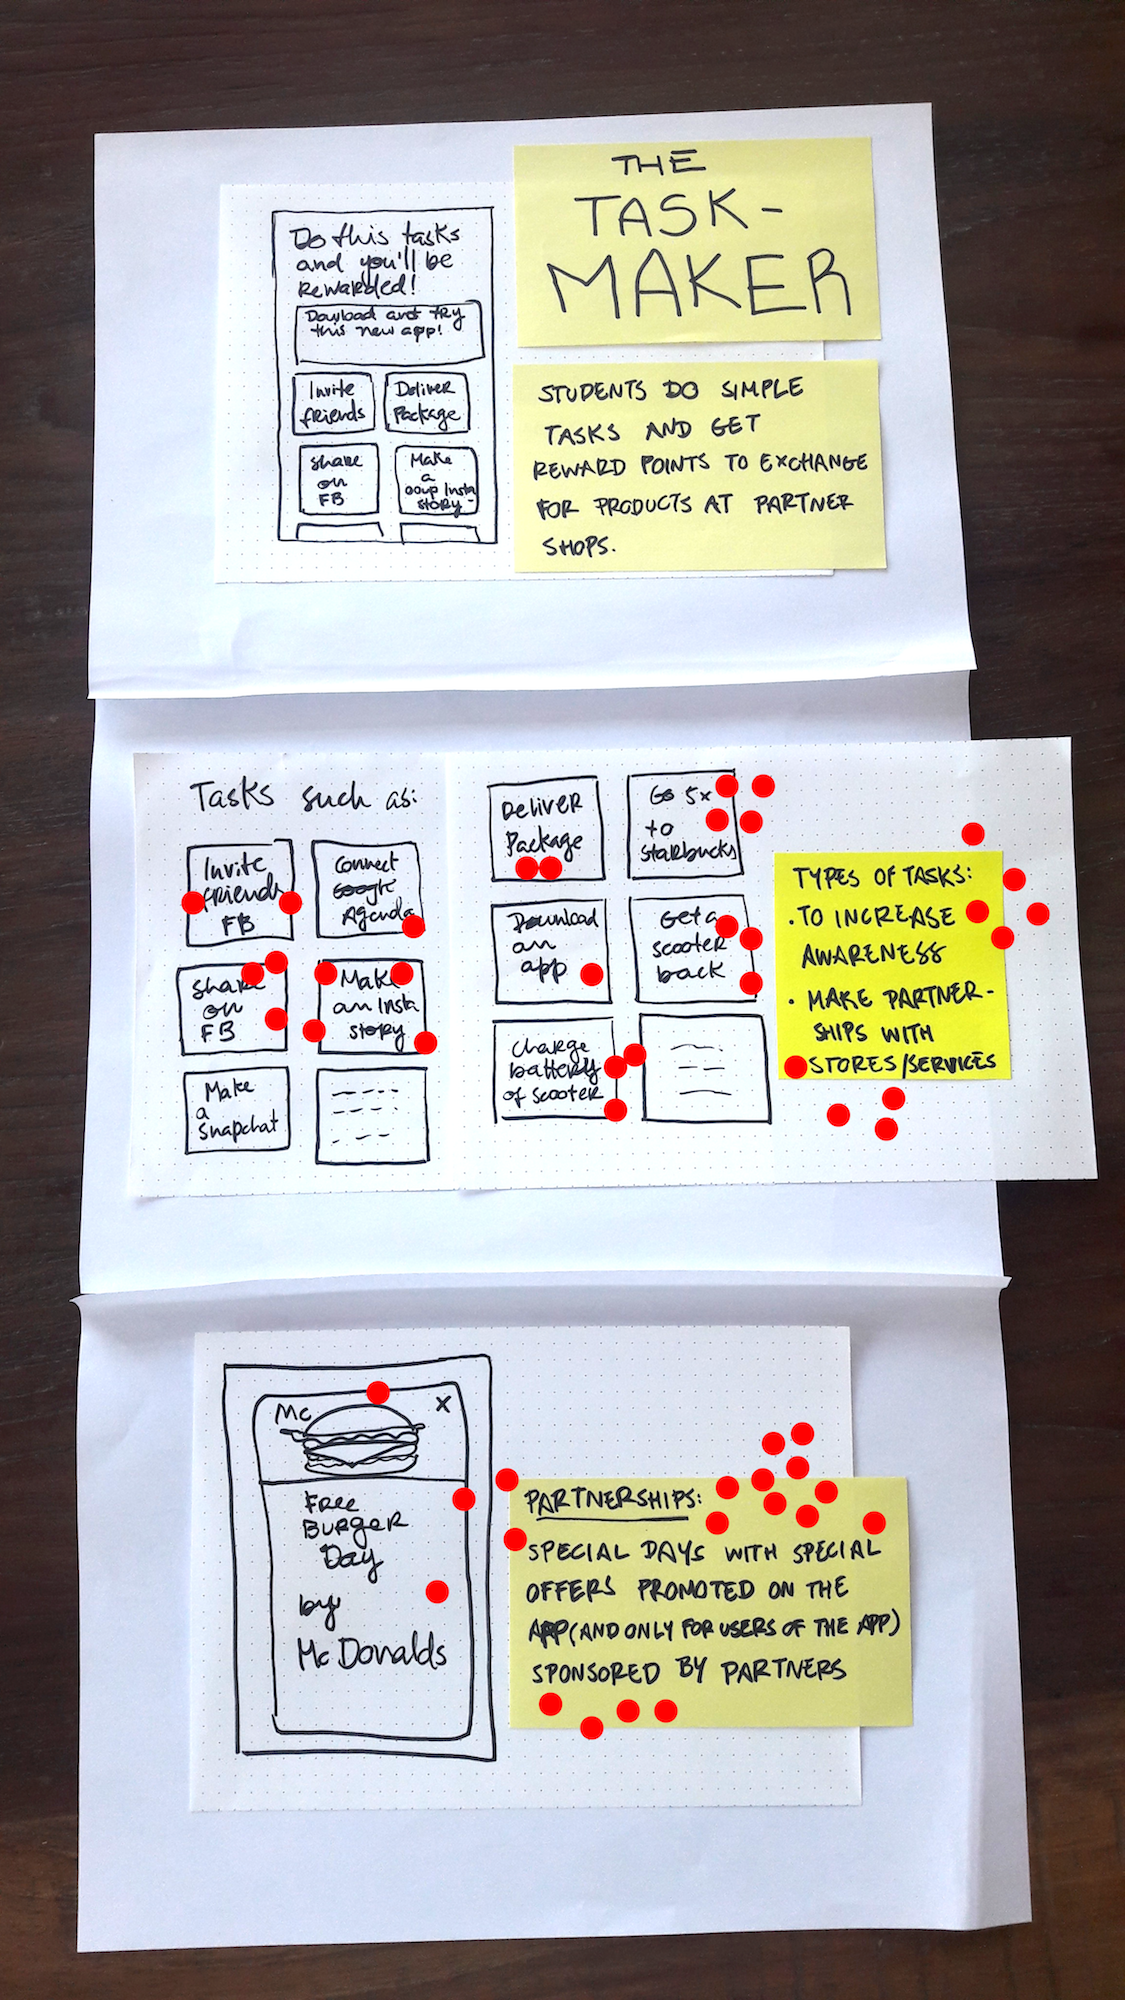 THE
TASK-
MAKER
Do this tasks
and you'll be
Rewarded!
Download and try
this new app!
Invite
friends
Deliver
Package
Share
on
FB
Make
a
Insta
story
STUDENTS DO SIMPLE
TASKS AND GET
REWARD POINTS TO EXCHANGE
FOR PRODUCTS AT PARTNER
SHOPS.
Tasks such as:
Invite
friends
FB
Connect
Google
Agenda
Share
on
FB
Make
an Insta
story
Make
a
Snapchat
Deliver
Package
Go 5x
to
Starbucks
Download
an
app
Get a
scooter
back
Charge
battery
of scooter
TYPES OF TASKS:
· TO INCREASE
AWARENESS
· MAKE PARTNER-
SHIPS WITH
STORES/SERVICES
Mc
X
Free
Burger
Day
by
McDonalds
PARTNERSHIPS:
SPECIAL DAYS WITH SPECIAL
OFFERS PROMOTED ON THE
APP (AND ONLY FOR USERS OF THE APP)
SPONSORED BY PARTNERS